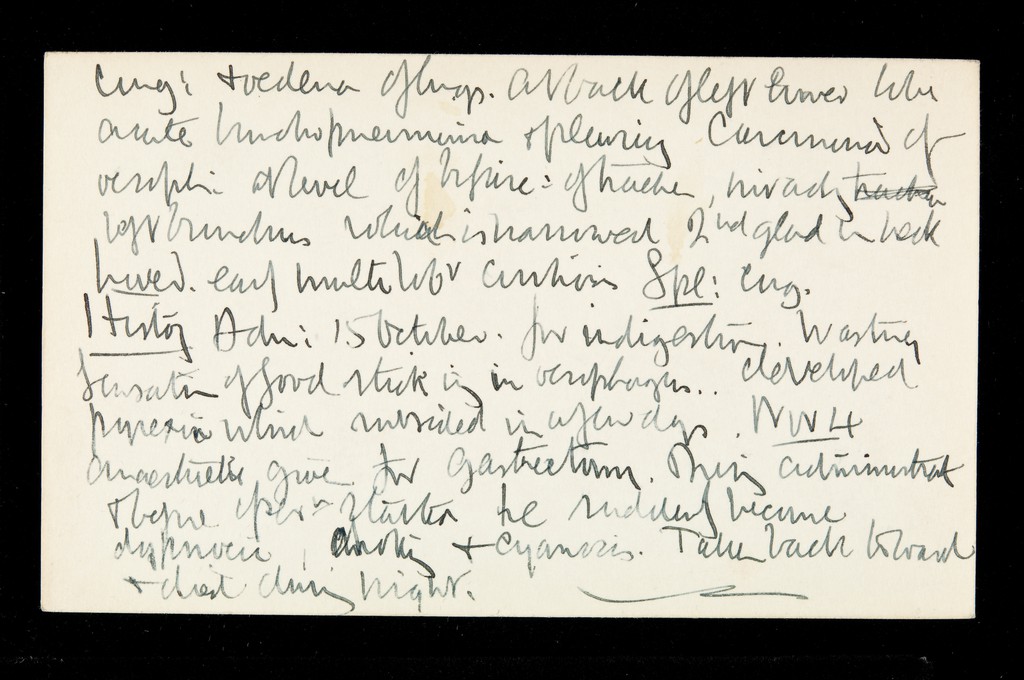 Cong: + oedema of lungs. At back of left lower lobe
acute bronchopneumonia + pleurisy Carcinoma of
oesoph: at level of bifurc: of trachea, invading trachea
left bronchus which is narrowed 2nd glad in neck
Liver. early multilobr cirrhosis Spl: cong.
History Adm: 15 October. for indigestion. Wasting
Sensation of food sticking in oesophagus.. developed
pyrexia which subsided in a few days. Nov 4
anaesthetic give for gastrectomy. During administrat
+ before opern started he suddenly became
dyspnoeic, + cyanosis. Taken back to ward
+ died during night.